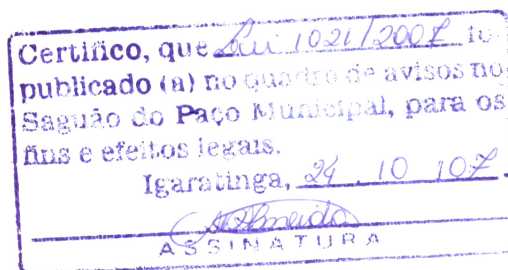 Certifico, que Lei 1021/2007 fo
publicado (a) no quadro de avisos no
Saguão do Paço Municipal, para os
fins e efeitos legais.
Igaratinga, 24 10 107.
Almeida
ASSINATURA